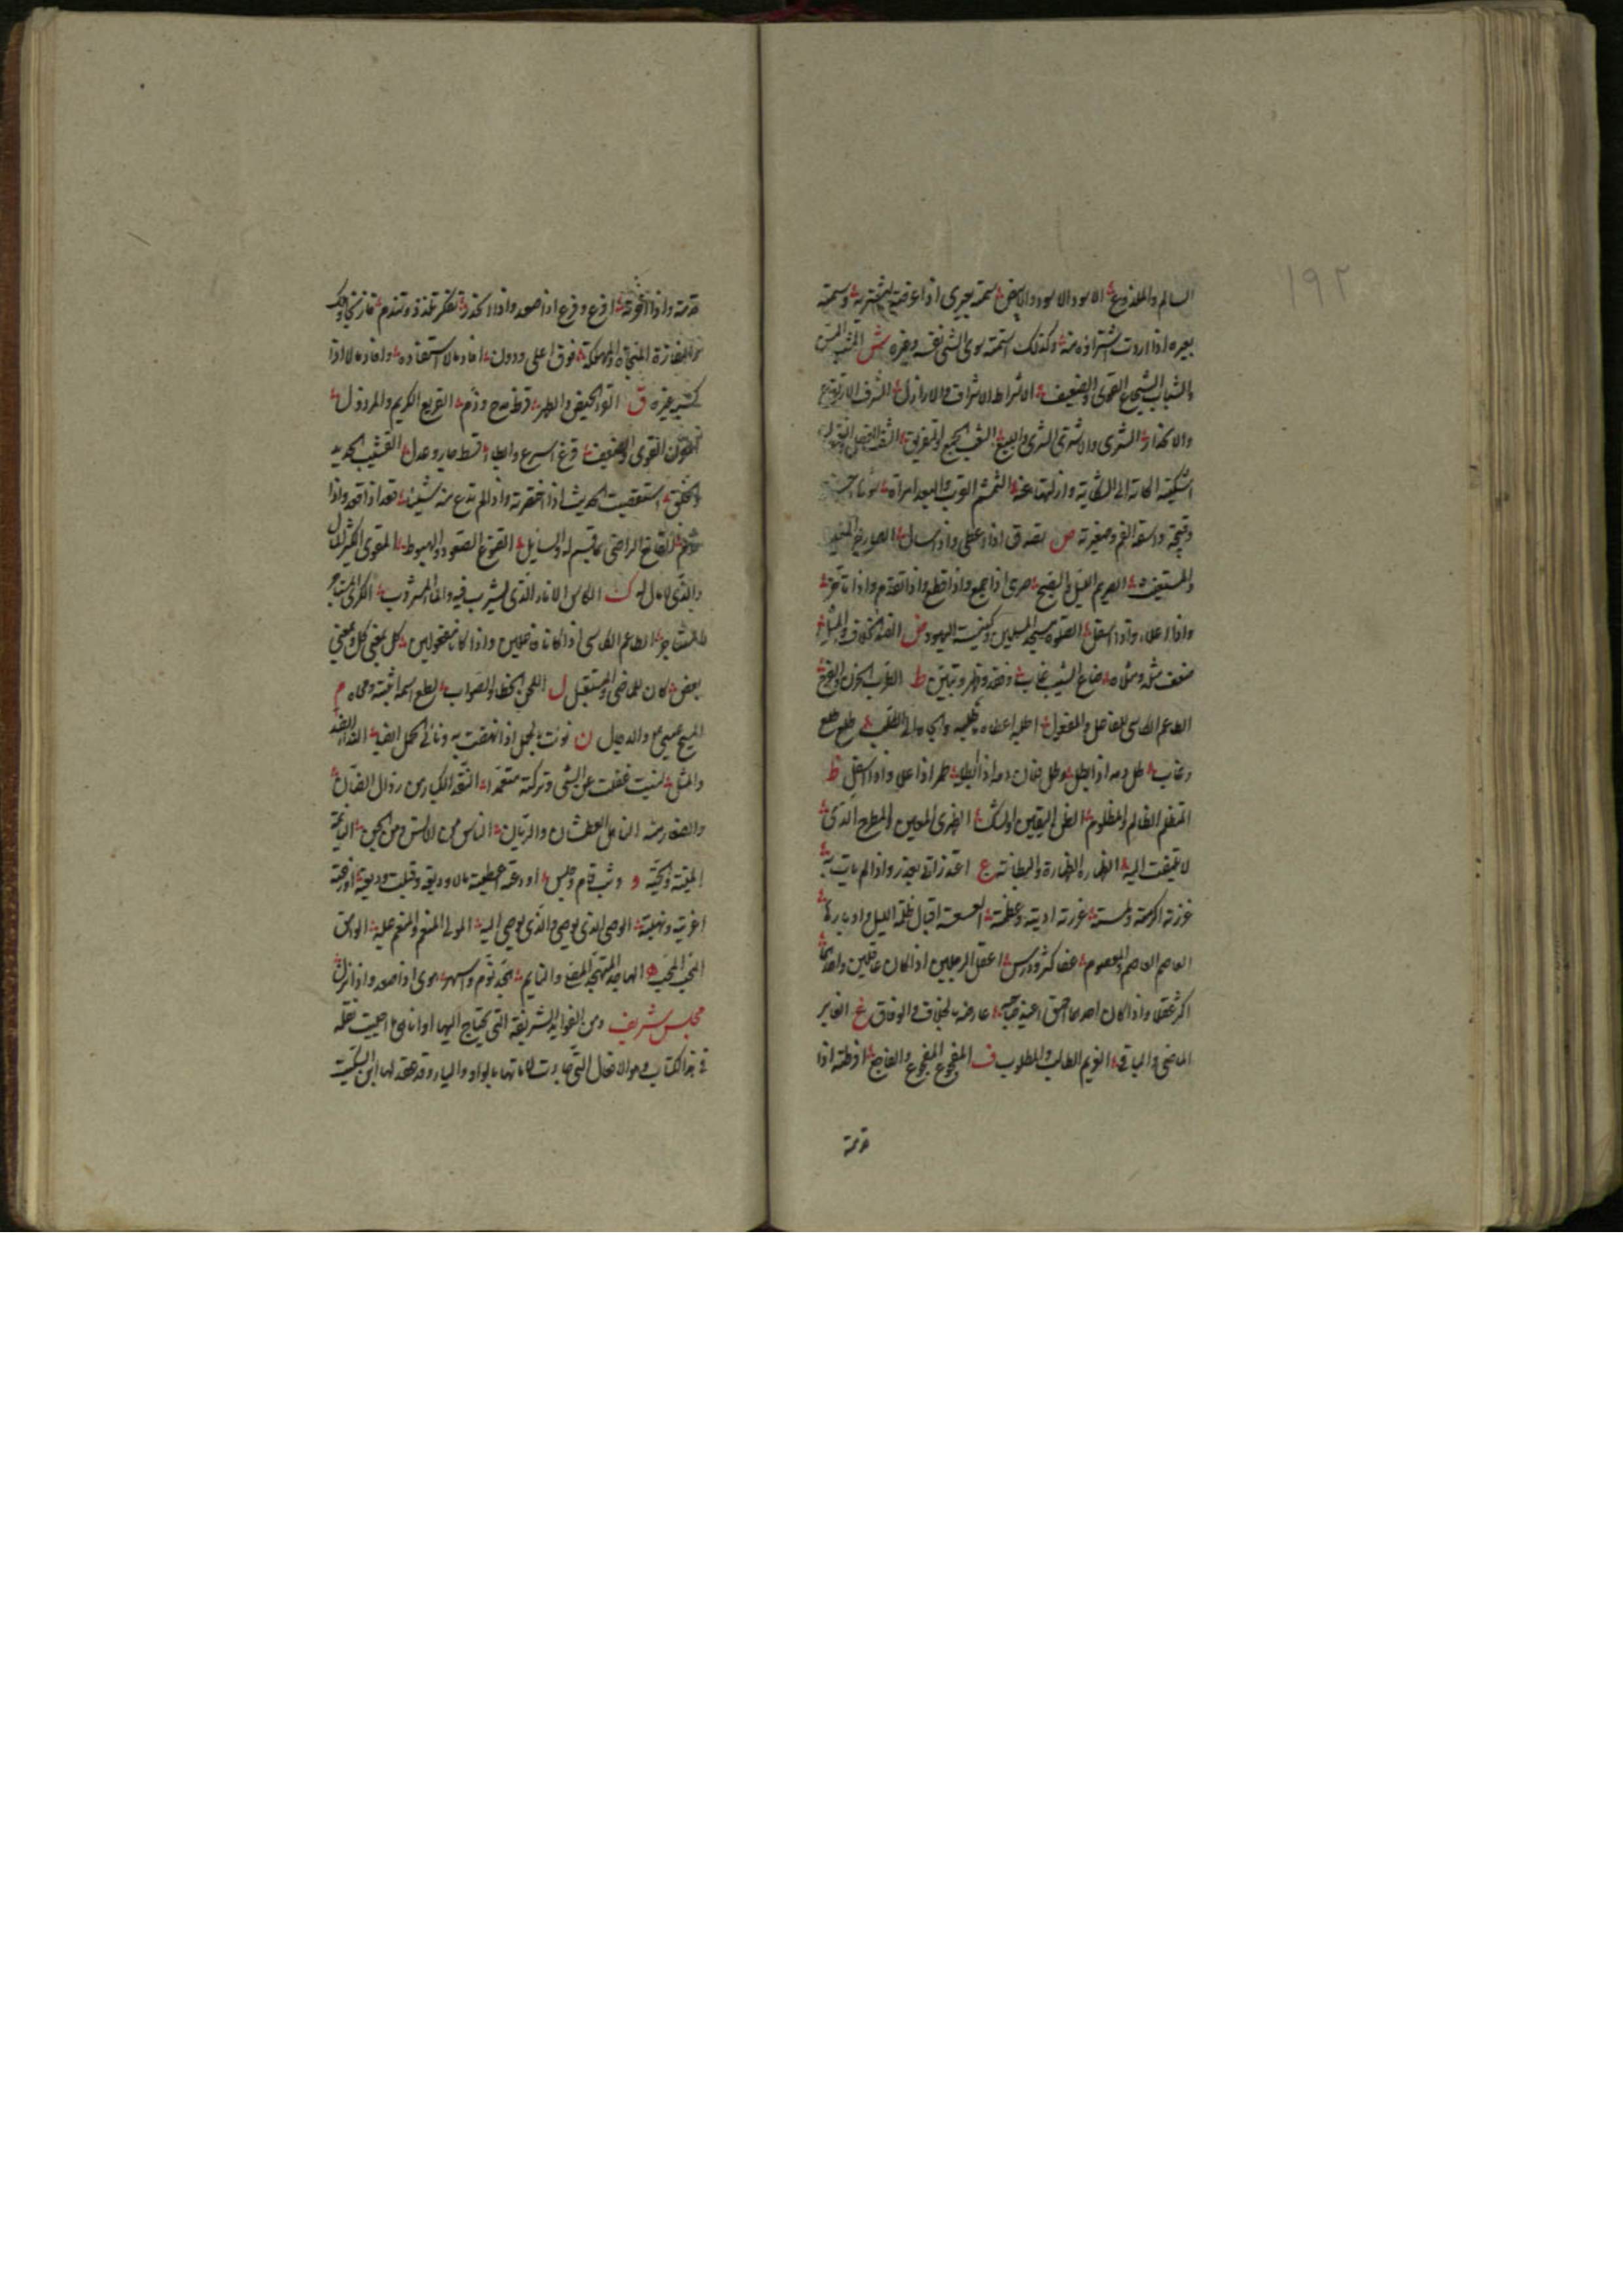 ١٩٢
السالم والملدوغ الاسود الاسود والابيض سمته بعيرى اذا عرضته ليشتريه وسمته
بعيره اذا اردت اشتراؤه منه وكذلك استمته سوى الشئ نفسه وغيره ش المشب المسن
والشاب الشجاع القوى والضعيف الاشراط الاشراف والارذال الشرف الارتفاع
والانحدار الشرى والاشترى الشرى والبيع الشعب الجمع والتفريق الشف الفضل والنقصان
اشكيته الجاته الى الشكاية وازلتها عنه الشمم القرب والبعد امراة شوهاء حسنة
وقبيحة واسعة الفم وصغيرته ص تصدق اذا اعطى واذا سال الصارخ المغيث
والمستغيث الصريم الليل والصبح صرى اذا جمع واذا قطع واذا تقدم واذا تاخر
واذا علا واذا اسفل الصلوة مسجد المسلمين وكنيسة اليهود ض الضد الخلاف والمثل
ضعف مثله ومثلاه ضاع الشئ غاب وفقد وظهر وتبين ط الطرب الحزن والفرح
الطاعم الكاسى للفاعل والمفعول اطلع طلع
وغاب طل دمه اذا بطل وطل فلان دمه اذا ابطله طمر اذا علا واذا اسفل ظ
المتظلم الظالم والمظلوم الظن اليقين والشك الظهرى المعين والمطرح الذى
لا يلتفت اليه الظهارة الظهارة والبطانة ع اعتذر اتى بعذر واذا لم يات به
عزرته اكرمته ولمته عزرته ادبته وعظمته العسعسة اقبال ظلمة الليل وادبارها
العاصم العاصم والمعصوم عفا كثر ودرس اعقل الرجلين اذا كان عاقلين واحدهما
اكثر عقلا واذا كان احدهما احمق عارضه بالخلاف والوفاق غ الغابر
الماضى والباقى الغريم الطالب والمطلوب ف المفجوع المفجوع والفاجع افرطته اذا
قدمته
قدمته واذا اخرته افرع وفرع اذا صعد واذا انحدر تفكر تلذذ وتندم فاز نجى وهلك
والمفازة المنجاة والمهلكة فوق اعلى ودون افاد مالا استفاده وافاد مالا اذا
كسبه غيره ق القرء الحيض والطهر قرظ مدح وذم القريع الكريم والمرذول
المقوى القوى والضعيف قرع اسرع وابطا قسط جار وعدل القشيب الجديد
والخلق استقصيت الحديث اذا اختصرته واذا لم تدع منه شيئا قعد اذا قعد واذا
قام القانع الراضى بما قسم له والسايل القموع الصعود والهبوط المقوى الكثير المال
والذى لا مال له ك الكاس الاناء الذى يشرب فيه والماء المشروب الكرى المستاجر
والمستاجر الطاعم الكاسى اذا كانا فاعلين واذا كانا مفعولين كل بمعنى كل وبمعنى
بعض كان للماضى والمستقبل ل اللحن الخطاء والصواب لطع اسمه اثبته ومحاه م
المسيح عيسى ع والدجال ن نؤت بالحمل اذا نهضت به وناء بى الحمل ايضا الند الضد
والمثل نسيت غفلت عن الشئ وتركته متعمدا النقد الكبار من رذال الضان
والصغار منه الناهل العطشان والريان الناس من الانس ومن الجن النائمة
الميتة والحية و وثب قام وجلس اودعته اعطيته مالا وديعة وقبلت وديعته اوزعته
اغريته ونهيته الوصى الذى يوصى والذى يوصى اليه المولى المنعم والمنعم عليه الوامق
المحب المحب ه الهاجد المتهجد المصلى والنايم تهجد نوم وسهر هوى اذا صعد واذا نزل
مجلس شريف ومن الفوايد الشريفة التى يحتاج اليها احببت نقله
فى هذا الكتاب وهو الافعال التى جاءت لاماتها بالواو والياء وقد عقد لها ابن السكيت